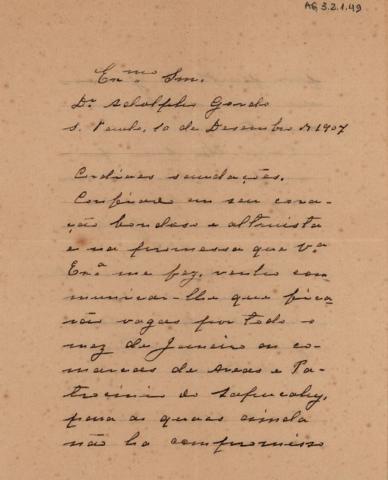 AG 3.2.1.49
Exmo. Snr.
Dr. Adolpho Gordo
S. Paulo, 10 de Dezembro de 1907
Cordiaes saudações.
Confiado em seu cora-
ção bondoso e altruista
e na promessa que V.ª
Ex.ª me fez, venho com-
municar-lhe que fica-
rão vagas por todo o
mez de Janeiro as co-
marcas de Areas e Pa-
trocinio do Sapucahy,
para as quaes ainda
não ha compromisso